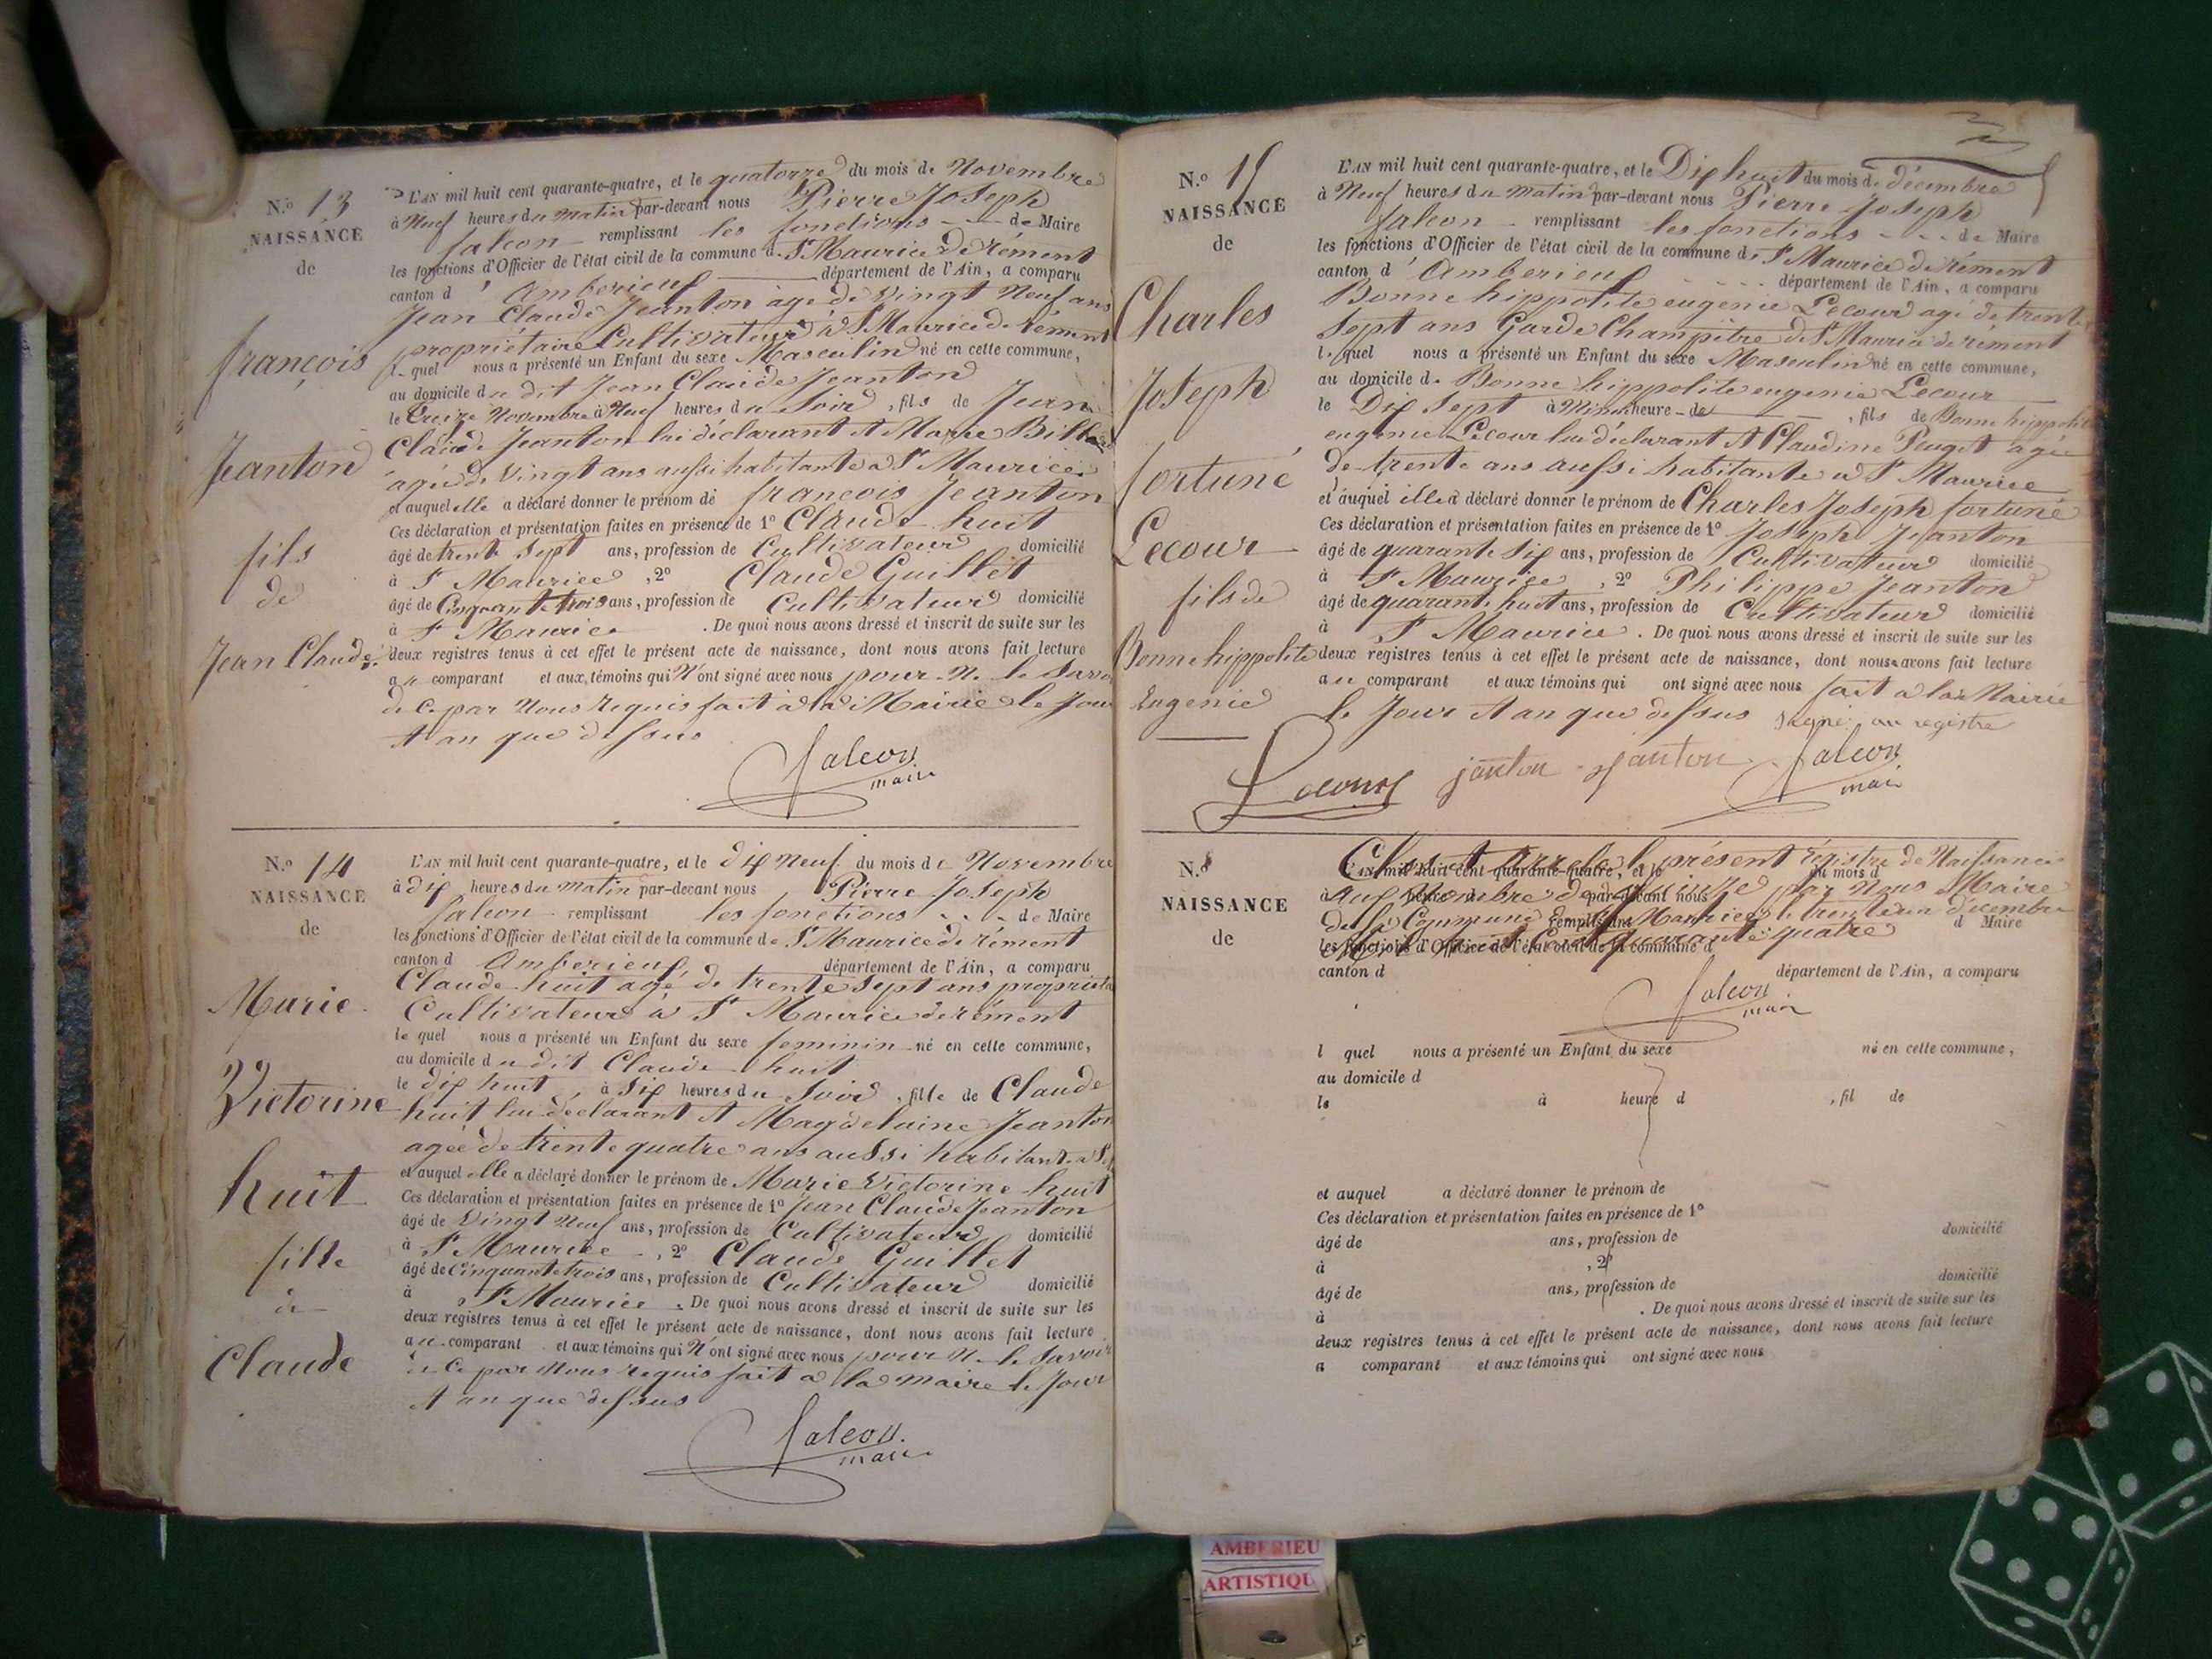 N.º 13
NAISSANCE
de
françois
Jeanton
fils
de
Jean Claude
L'AN mil huit cent quarante-quatre, et le quatorze du mois de Novembre
à Neuf heures du matin par-devant nous Pierre Joseph
falcon remplissant les fonctions de Maire
les fonctions d'Officier de l'état civil de la commune de St Maurice de rément
canton d' Amberieux département de l'Ain, a comparu
Jean Claude Jeanton âgé de vingt Neuf ans
propriétaire Cultivateur à St Maurice de rément
le quel nous a présenté un Enfant du sexe Masculin né en cette commune,
au domicile du dit Jean Claude Jeanton
le treize Novembre à Neuf heures du Soir, fils de Jean
Claude Jeanton lui déclarant et Marie
agée de vingt ans aussi habitante à St Maurice
et auquel elle a déclaré donner le prénom de françois Jeanton
Ces déclaration et présentation faites en présence de 1º Claude huit
âgé de trente sept ans, profession de Cultivateur domicilié
à St Maurice, 2º Claude Guillet
âgé de Cinquante trois ans, profession de Cultivateur domicilié
à St Maurice. De quoi nous avons dressé et inscrit de suite sur les
deux registres tenus à cet effet le présent acte de naissance, dont nous avons fait lecture
au comparant et aux témoins qui N'ont signé avec nous pour Ne le Savoir
de ce par Nous requis fait à la Mairie le Jour
et an que dessus
falcon
maire
N.º 14
NAISSANCE
de
Marie
Victorine
huit
fille
de
Claude
L'AN mil huit cent quarante-quatre, et le dix Neuf du mois de Novembre
à dix heures du matin par-devant nous Pierre Joseph
falcon remplissant les fonctions de Maire
les fonctions d'Officier de l'état civil de la commune de St Maurice de rément
canton d Amberieux département de l'Ain, a comparu
Claude huit agé de trente sept ans
Cultivateur à St Maurice de rément
le quel nous a présenté un Enfant du sexe feminin né en cette commune,
au domicile du dit Claude huit
le dix huit, à Six heures du Soir, fille de Claude
huit lui déclarant et Magdelaine Jeanton
agée de trente quatre ans aussi habitante à St
et auquel elle a déclaré donner le prénom de Marie Victorine huit
Ces déclaration et présentation faites en présence de 1º Jean Claude Jeanton
âgé de Vingt Neuf ans, profession de Cultivateur domicilié
à St Maurice, 2º Claude Guillet
âgé de Cinquante trois ans, profession de Cultivateur domicilié
à St Maurice. De quoi nous avons dressé et inscrit de suite sur les
deux registres tenus à cet effet le présent acte de naissance, dont nous avons fait lecture
au comparant et aux témoins qui N'ont signé avec nous pour Ne le Savoir
de ce par Nous requis fait à la maire le Jour
et an que dessus
falcon.
maire
N.º 15
NAISSANCE
de
Charles
Joseph
fortuné
Lecour
fils de
Bonne hippolite
Eugenie
L'AN mil huit cent quarante-quatre, et le Dix huit du mois de décembre
à Neuf heures du matin par-devant nous Pierre Joseph
falcon remplissant les fonctions de Maire
les fonctions d'Officier de l'état civil de la commune de St Maurice de rément
canton d' Amberieux département de l'Ain, a comparu
Bonne hippolite eugenie Lecour agé de trente
Sept ans Garde Champêtre de St Maurice de rément
le quel nous a présenté un Enfant du sexe Masculin né en cette commune,
au domicile de Bonne hippolite eugenie Lecour
le Dix Sept à heure de, fils de Bonne hippolite
eugenie Lecour lui déclarant et Claudine Puget agée
de trente ans aussi habitante à St Maurice
et auquel il a déclaré donner le prénom de Charles Joseph fortuné
Ces déclaration et présentation faites en présence de 1º Joseph Jeanton
âgé de quarante Six ans, profession de Cultivateur domicilié
à St Maurice, 2º Philippe Jeanton
âgé de quarante huit ans, profession de Cultivateur domicilié
à St Maurice. De quoi nous avons dressé et inscrit de suite sur les
deux registres tenus à cet effet le présent acte de naissance, dont nous avons fait lecture
au comparant et aux témoins qui ont signé avec nous fait à la Mairie
le Jour et an que dessus signé au registre
Lecour janton janton falcon
maire
N.º
NAISSANCE
de
Clos et Arrêté le présent régistre de Naissance
L'AN mil huit cent quarante-quatre, et le du mois d
au Nombre de quinze par Nous Maire
à heure d par-devant nous
de la Commune de St Maurice le trente un décembre
remplissant d Maire
Mil huit Cent quarante quatre
les fonctions d'Officier de l'état civil de la commune d
canton d département de l'Ain, a comparu
falcon
maire
l quel nous a présenté un Enfant du sexe né en cette commune,
au domicile d
le à heure d, fil de
et auquel a déclaré donner le prénom de
Ces déclaration et présentation faites en présence de 1º
âgé de ans, profession de domicilié
à, 2º
âgé de ans, profession de domicilié
à. De quoi nous avons dressé et inscrit de suite sur les
deux registres tenus à cet effet le présent acte de naissance, dont nous avons fait lecture
a comparant et aux témoins qui ont signé avec nous
AMBERIEU
ARTISTIQU